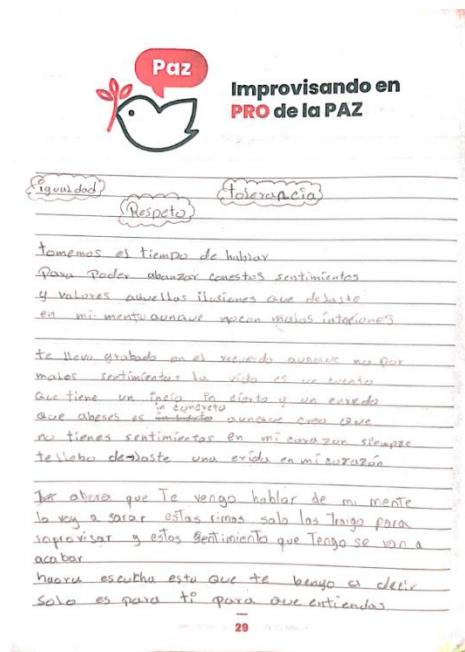 Paz
Improvisando en
PRO de la PAZ
igualdad
tolerancia
Respeto
tomemos el tiempo de hablar
Para Poder abanzar conestos sentimientos
y valores aquellas ilusiones que dejaste
en mi mentu aunque nocon malos intesiones
te llevo grabado en el recuerdo aunque no por
malos sentimientos la vida es un cuento
Que tiene un inCio in cierto y un enredo
in concreto
Que abeses es aunque creo que
no tienes sentimientos en mi corazon siempre
te llebo dejaste una erida en mi corazón
ahora que Te vengo hablar de mi mente
lo voy a sacar estas rimas solo las Traigo para
improvisar y estos sentimiento que Tengo se van a
acabar
haoru escutha esto que te bengo a decir
Solo es para ti para que entiendas
29